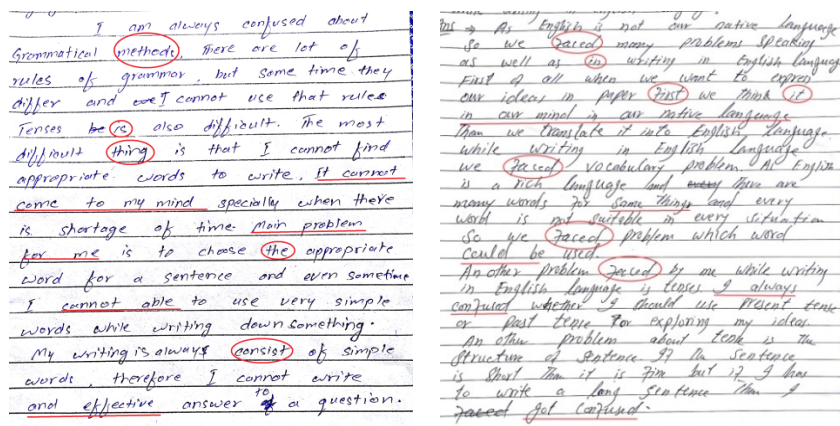 I am always confused about
Grammatical methods. There are lot of
rules of grammar, but some time they
differ and I cannot use that rules
Tenses is also difficult. The most
difficult thing is that I cannot find
appropriate words to write. It cannot
come to my mind specially when there
is shortage of time. Main problem
for me is to choose the appropriate
word for a sentence and even sometime
I cannot able to use very simple
words while writing down something.
My writing is always consist of simple
words, therefore I cannot write
and effective answer to a question.
Ans → As English is not our native language
So we faced many problems speaking
as well as in writing in English language
First of all when we want to expren
our ideas in paper first we think it
in our mind in our native language
Than we translate it into English language.
while writing in English language
we faced vocabulary problem. As English
is a rich language and there are
many words for some things and every
word is not suitable in every situation
So we faced problem which word
could be used.
An other problem faced by me while writing
in English language is tenses I always
confused whether I should use present tense
or past tense for exploring my ideas.
An other problem about tense is the
structure of sentence If the sentence
is short than it is fine but if I has
to write a long sentence than I
faced got confused.